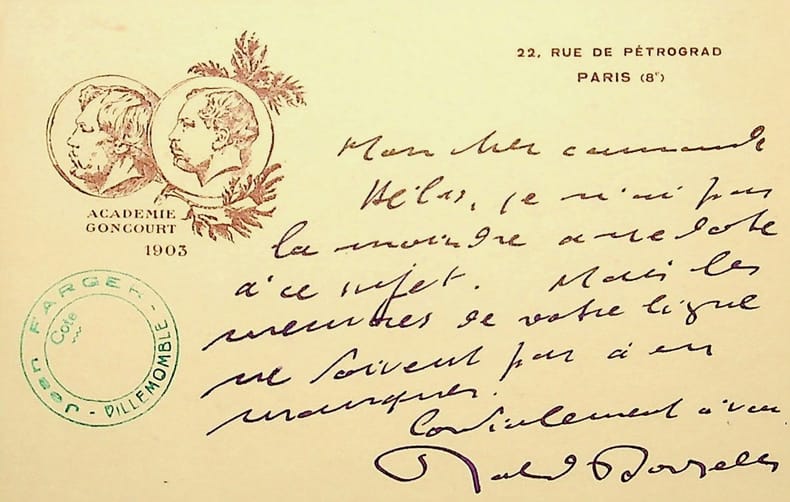 22, RUE DE PÉTROGRAD
PARIS (8e)
ACADEMIE
GONCOURT
1903
Jean FARGER - VILLEMOMBLE -
Cote
Mon cher camarade
Hélas, je n'ai pas
la moindre anecdote
à ce sujet. Mais les
membres de votre ligue
ne doivent pas à en
manquer.
Cordialement à vous
Roland Dorgelès